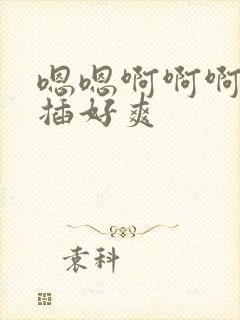 嗯嗯啊啊啊
插好爽
袁科